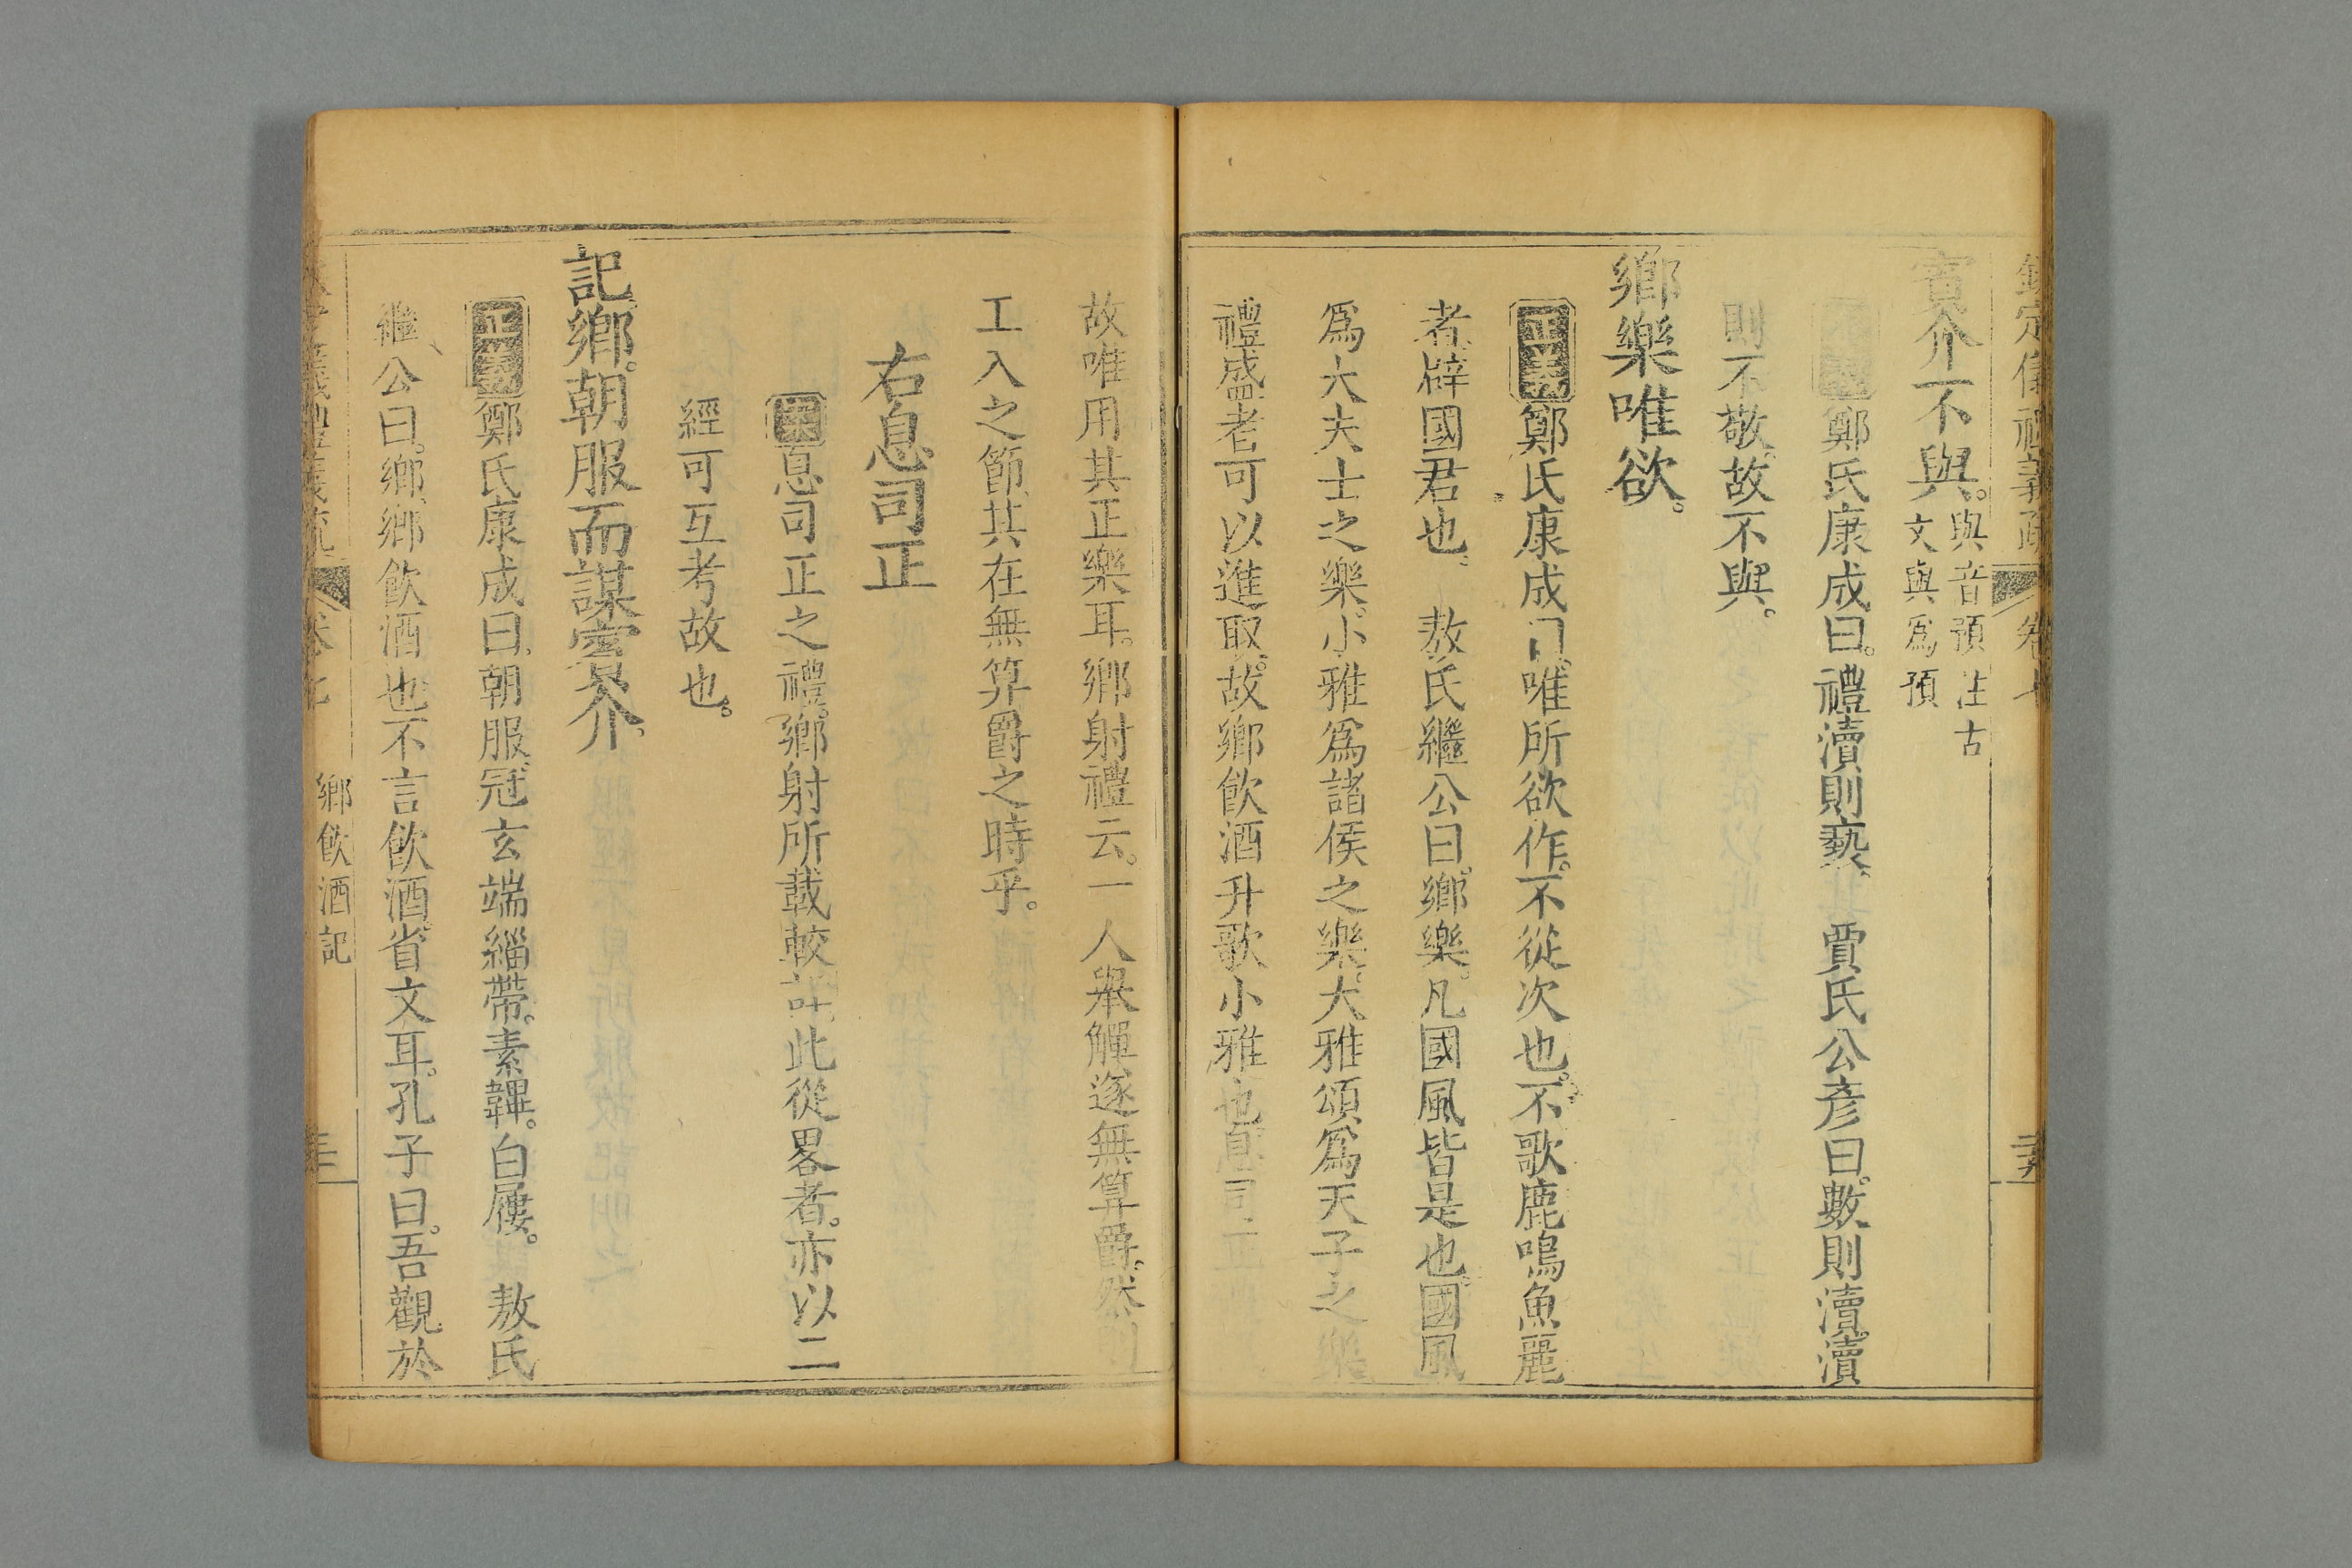 賓介不與。與音預注古
文與爲預
鄭氏康成曰。禮瀆則褻、賈氏公彥曰。數則瀆。瀆
則不敬。故不與。
鄉樂唯欲。
正義鄭氏康成曰唯所欲作。不從次也。不歌鹿鳴魚麗
者、辟國君也。敖氏繼公曰。鄉樂。凡國風皆是也。國風
爲大夫士之樂。小雅爲諸侯之樂。大雅頌爲天子之樂
禮盛者可以進取。故鄉飲酒升歌小雅也息司正
故唯用其正樂耳。鄉射禮云。一人舉觶遂無算爵。然
工入之節其在無算爵之時乎。
右息司正
案息司正之禮。鄉射所載較詳。此從畧者。亦以二
經可互考故也。
記。鄉。朝服而謀賓介、
正義鄭氏康成曰、朝服、冠玄端緇帶。素韠。白屨。敖氏
繼公曰。鄉、鄉飲酒也不言飲酒。省文耳。孔子曰。吾觀於
鄉飲酒記